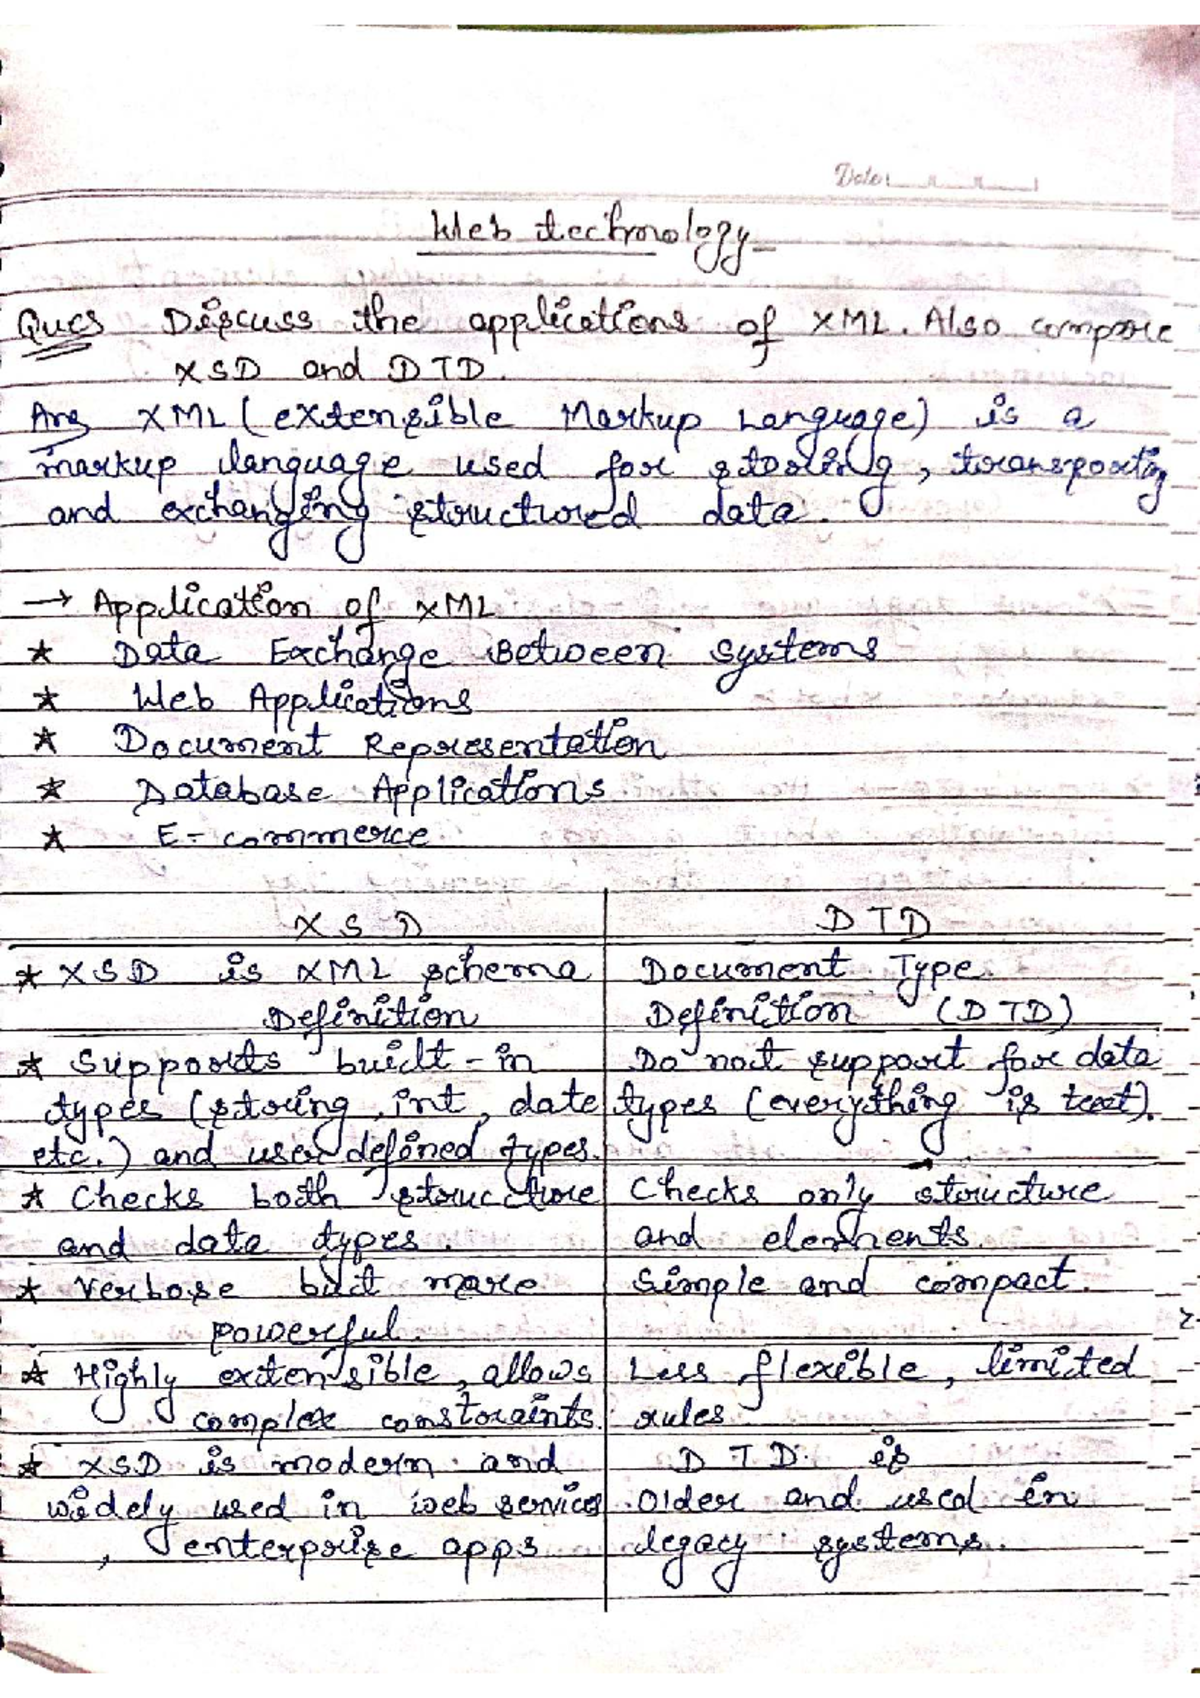 Date:
Web technology
Ques Discuss the applications of XML. Also compare
XSD and DTD.
Ans XML (extensible Markup Language) is a
markup language used for storing, transporting
and exchanging structured data.
→ Application of XML
★ Data Exchange Between Systems
★ Web Applications
★ Document Representation
★ Database Applications
★ E-commerce
XSD | DTD
★ XSD is XML schema | Document Type
Definition | Definition (DTD)
★ Supports built-in | Do not support for data
types (string, int, date | types (everything is text).
etc.) and user defined types.
★ Checks both structure | Checks only structure
and data types. | and elements.
★ Verbose but more | Simple and compact.
powerful.
★ Highly extensible, allows | Less flexible, limited
complex constraints. | rules
★ XSD is modern and | DTD is
widely used in web services | older and used in
, enterprise apps | legacy systems.